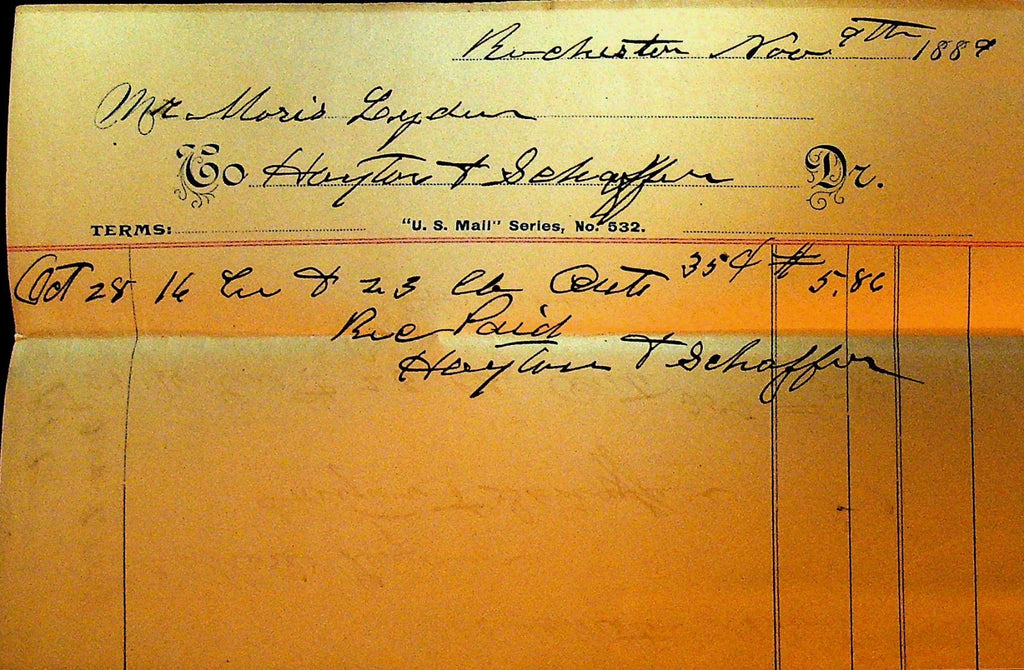 Rochester Nov 9th 1889
Mr. Moris Leyden
To Hoyton & Schaffer Dr.
TERMS: "U. S. Mail" Series, No. 532.
Oct 28 16 bu & 23 lb Oats 35¢ # 5.86
Rec Paid
Hoyton & Schaffer